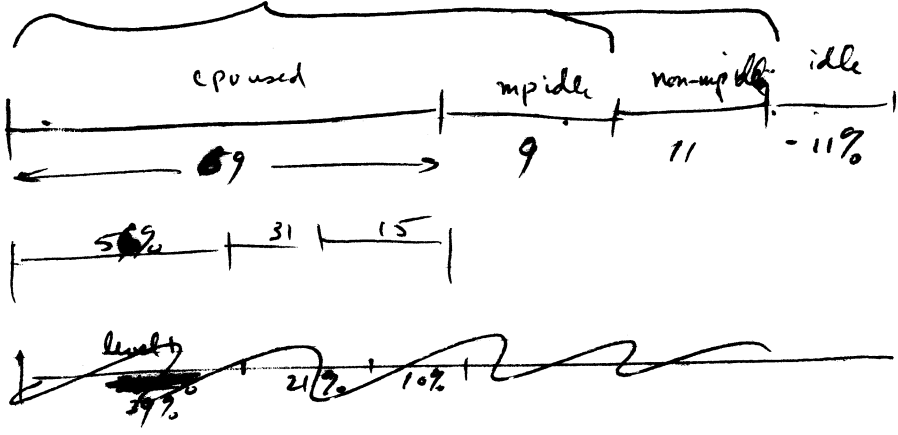 cpu used mp idle non-mp idle idle
69 9 11 - 11%
5 % 31 15
level 1
39% 21% 10%